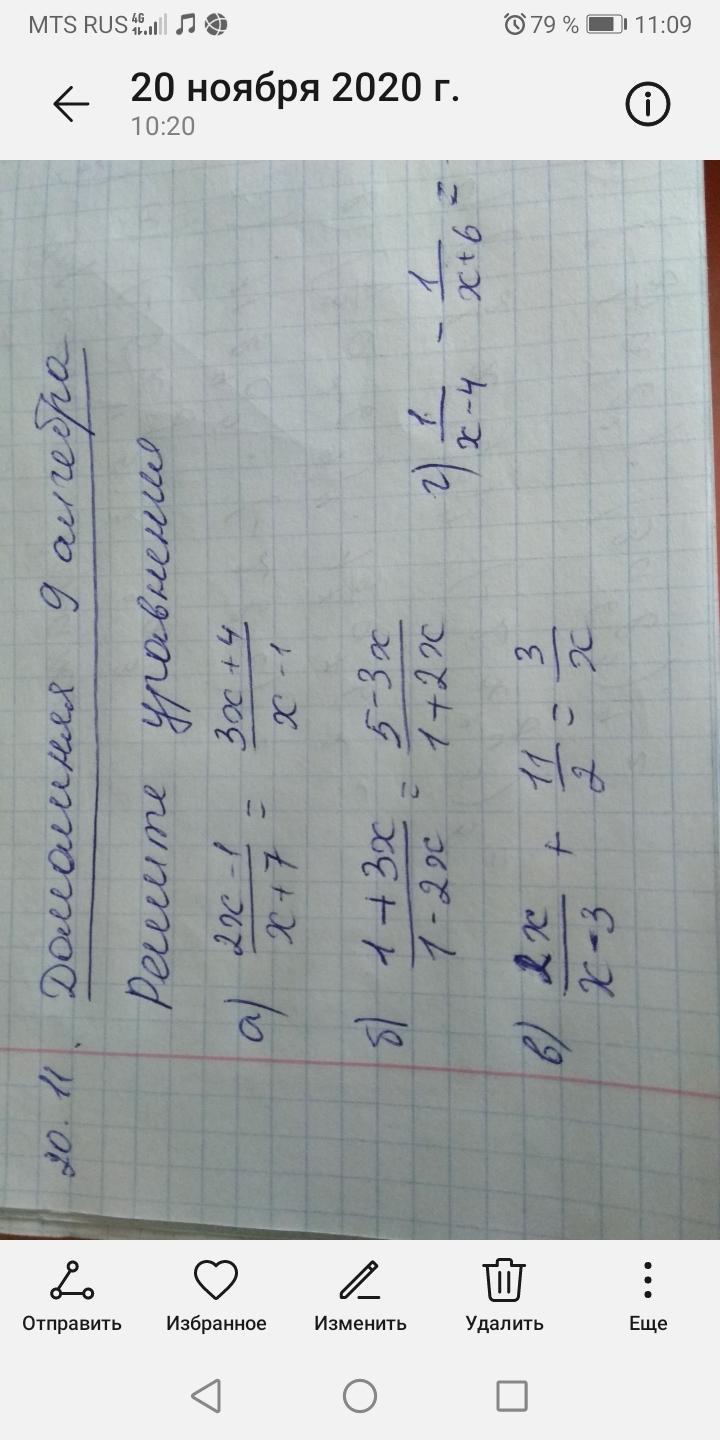 MTS RUS 4G 79 % 11:09
20 ноября 2020 г.
10:20
20. 11. Домашняя 9 алгебра
Решите уравнения
а) (2x-1)/(x+7) = (3x+4)/(x-1)
б) (1+3x)/(1-2x) = (5-3x)/(1+2x)
г) 1/(x-4) - 1/(x+6) =
в) 2x/(x-3) + 11/2 = 3/x
Отправить Избранное Изменить Удалить Еще